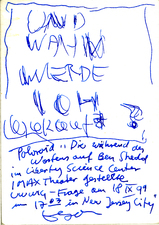 UND
WANN
WERDE
ICH
Polaroid "Die während des
Wartens auf Ben Shedd
im Liberty Science Center
IMAX Theater gestellte
- Frage am 18 IX 99
um 17 03 in New Jersey City"